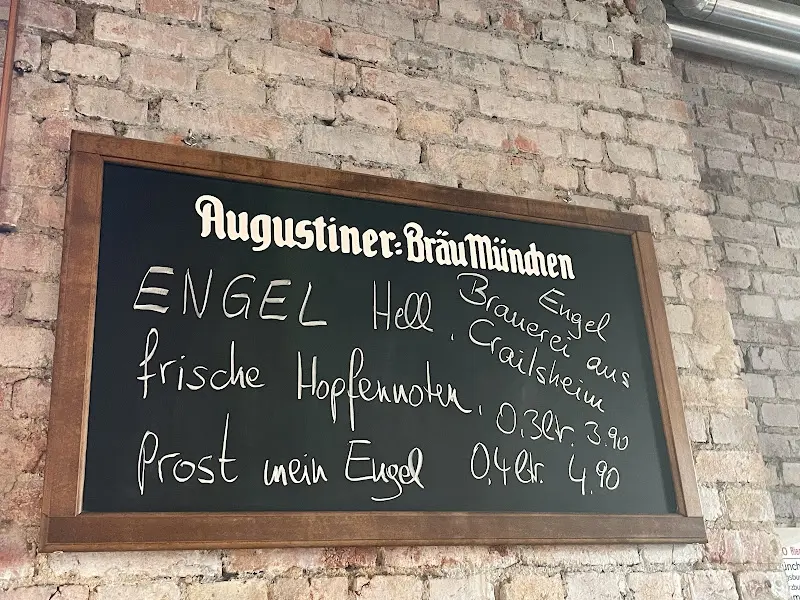 Augustiner-Bräu München
ENGEL Hell.
Engel
Brauerei aus
Crailsheim
frische Hopfennoten,
0,3ltr. 3.90
Prost mein Engel
0,4ltr. 4,90